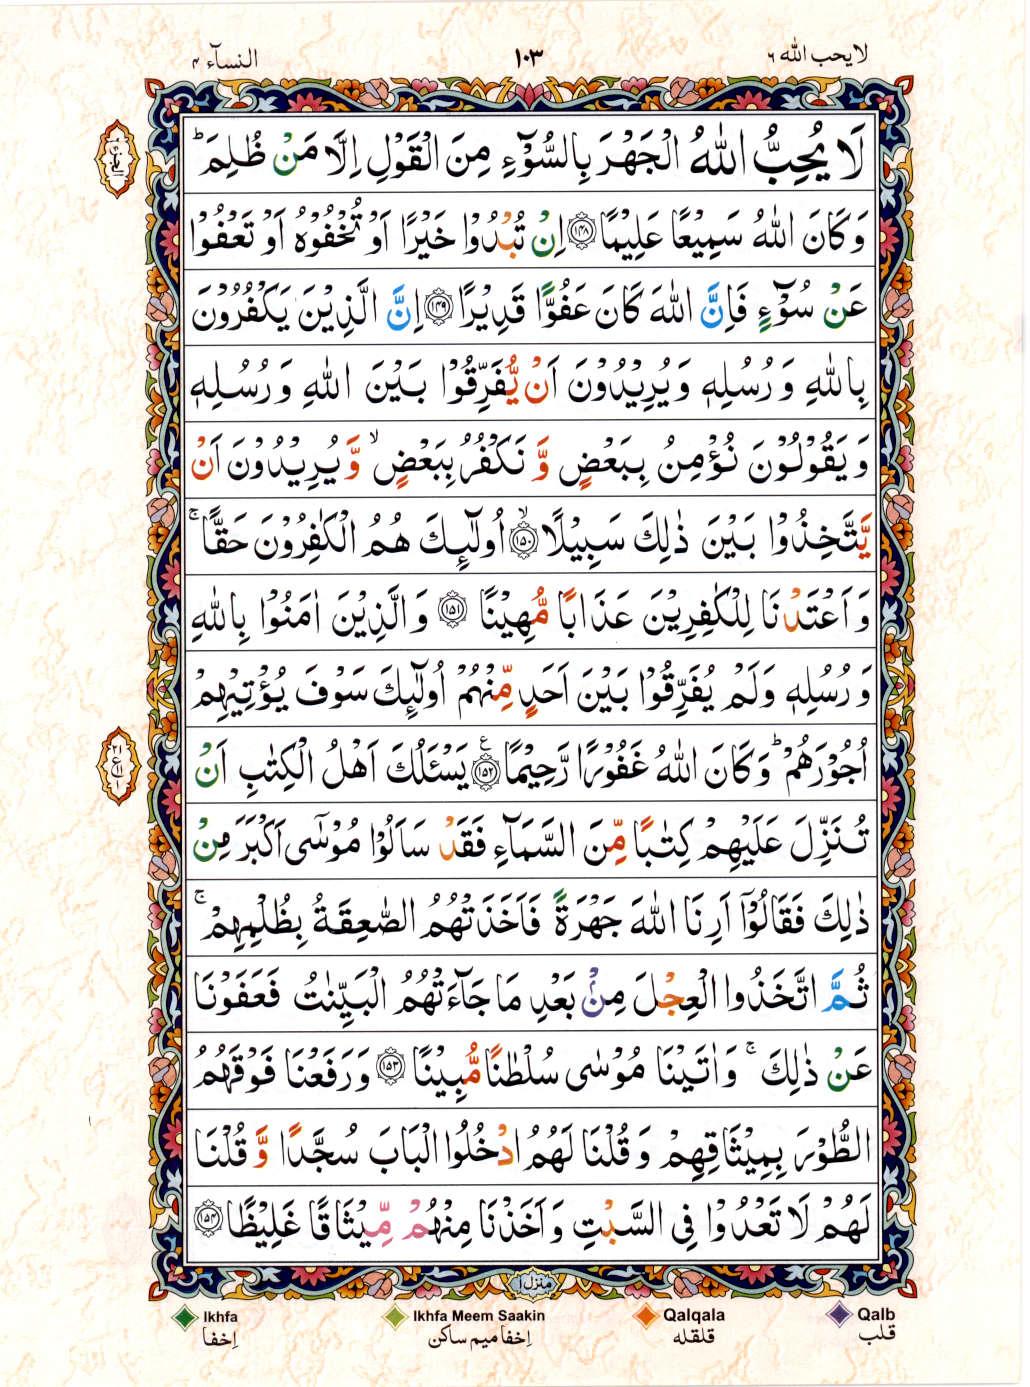 لا یحب اللہ ۶
۱۰۳
النسآء ۴
لَا يُحِبُّ اللّٰهُ الْجَهْرَ بِالسُّوْٓءِ مِنَ الْقَوْلِ اِلَّا مَنْ ظُلِمَ ؕ
وَ كَانَ اللّٰهُ سَمِيْعًا عَلِيْمًا ﴿۱۴۸﴾ اِنْ تُبْدُوْا خَيْرًا اَوْ تُخْفُوْهُ اَوْ تَعْفُوْا
عَنْ سُوْٓءٍ فَاِنَّ اللّٰهَ كَانَ عَفُوًّا قَدِيْرًا ﴿۱۴۹﴾ اِنَّ الَّذِيْنَ يَكْفُرُوْنَ
بِاللّٰهِ وَ رُسُلِهٖ وَ يُرِيْدُوْنَ اَنْ يُّفَرِّقُوْا بَيْنَ اللّٰهِ وَ رُسُلِهٖ
وَ يَقُوْلُوْنَ نُؤْمِنُ بِبَعْضٍ وَّ نَكْفُرُ بِبَعْضٍ ۙ وَّ يُرِيْدُوْنَ اَنْ
يَّتَّخِذُوْا بَيْنَ ذٰلِكَ سَبِيْلًا ۙ﴿۱۵۰﴾ اُولٰٓئِكَ هُمُ الْكٰفِرُوْنَ حَقًّا ۚ
وَ اَعْتَدْنَا لِلْكٰفِرِيْنَ عَذَابًا مُّهِيْنًا ﴿۱۵۱﴾ وَ الَّذِيْنَ اٰمَنُوْا بِاللّٰهِ
وَ رُسُلِهٖ وَ لَمْ يُفَرِّقُوْا بَيْنَ اَحَدٍ مِّنْهُمْ اُولٰٓئِكَ سَوْفَ يُؤْتِيْهِمْ
اُجُوْرَهُمْ ؕ وَ كَانَ اللّٰهُ غَفُوْرًا رَّحِيْمًا ﴿۱۵۲﴾ ع يَسْـَٔلُكَ اَهْلُ الْكِتٰبِ اَنْ
تُنَزِّلَ عَلَيْهِمْ كِتٰبًا مِّنَ السَّمَآءِ فَقَدْ سَاَلُوْا مُوْسٰۤى اَكْبَرَ مِنْ
ذٰلِكَ فَقَالُوْۤا اَرِنَا اللّٰهَ جَهْرَةً فَاَخَذَتْهُمُ الصّٰعِقَةُ بِظُلْمِهِمْ ۚ
ثُمَّ اتَّخَذُوا الْعِجْلَ مِنْۢ بَعْدِ مَا جَآءَتْهُمُ الْبَيِّنٰتُ فَعَفَوْنَا
عَنْ ذٰلِكَ ۚ وَ اٰتَيْنَا مُوْسٰى سُلْطٰنًا مُّبِيْنًا ﴿۱۵۳﴾ وَ رَفَعْنَا فَوْقَهُمُ
الطُّوْرَ بِمِيْثَاقِهِمْ وَ قُلْنَا لَهُمُ ادْخُلُوا الْبَابَ سُجَّدًا وَّ قُلْنَا
لَهُمْ لَا تَعْدُوْا فِى السَّبْتِ وَ اَخَذْنَا مِنْهُمْ مِّيْثَاقًا غَلِيْظًا ﴿۱۵۴﴾
منزل ۱
Ikhfa
اِخفا
Ikhfa Meem Saakin
اِخفا میم ساکن
Qalqala
قلقله
Qalb
قلب